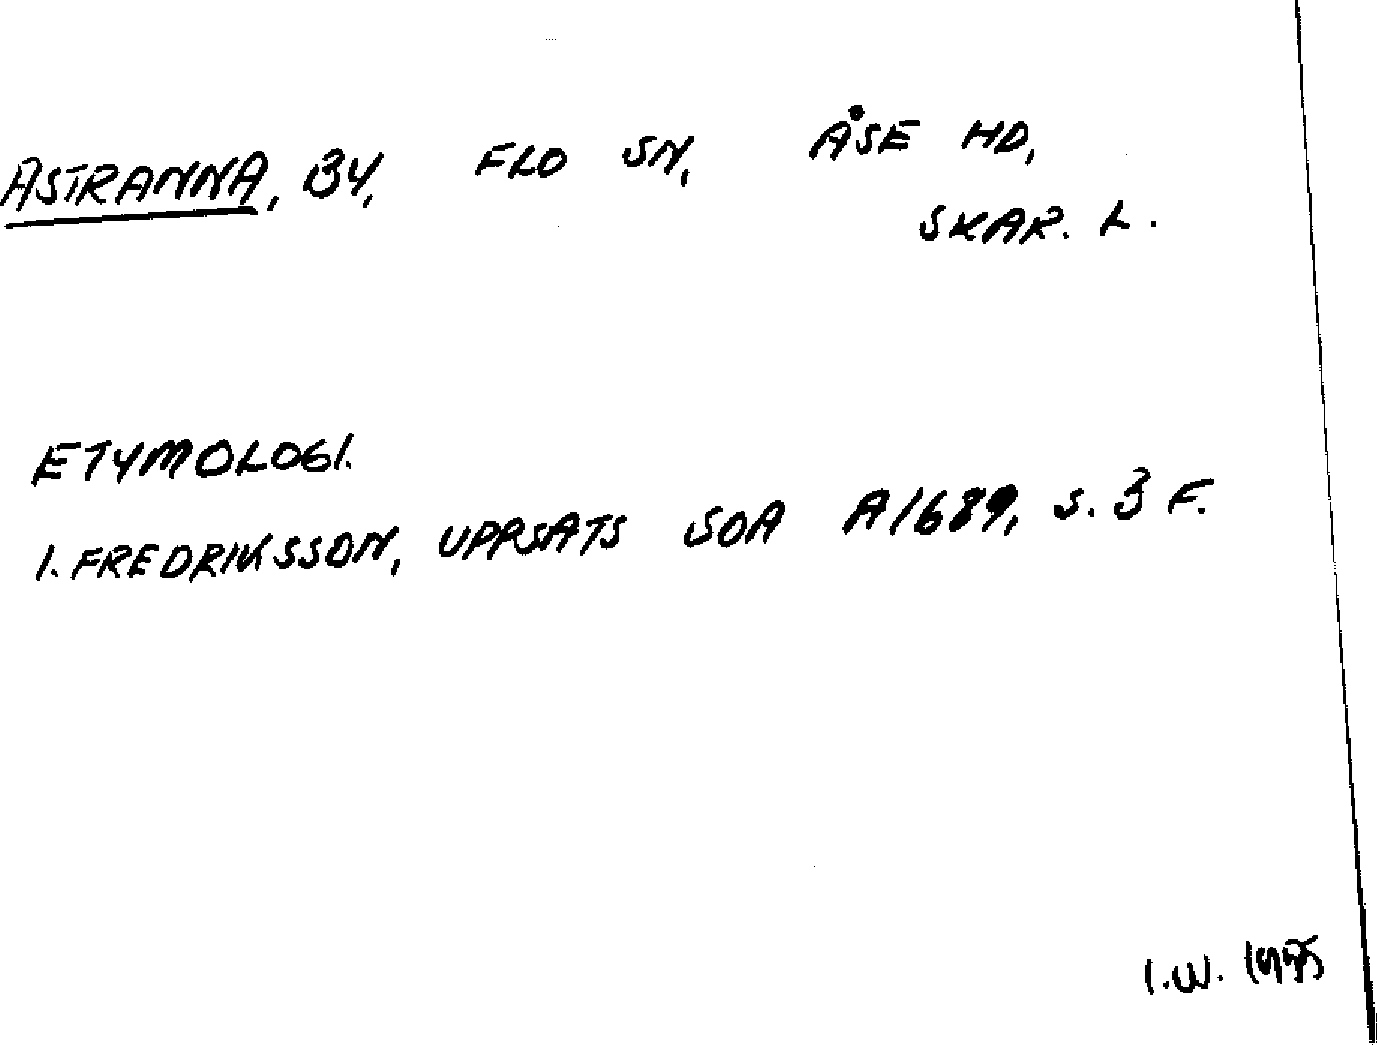 ASTRANNA, BY, FLO SN, ÅSE HD,
SKAR. L.
ETYMOLOGI.
I. FREDRIKSSON, UPPSATS SOA A1689, S. 3 F.
I.W.